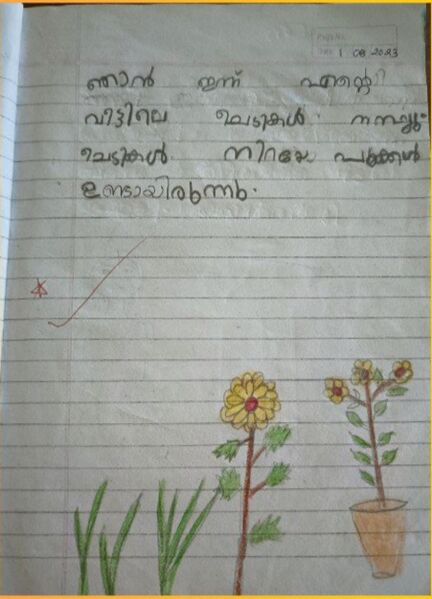 1 08 2023
ഞാൻ ഇന്ന് എന്റെ
വീട്ടിലെ ചെടികൾ നനച്ചു.
ചെടികൾ നിറയെ പൂക്കൾ
ഉണ്ടായിരുന്നു.